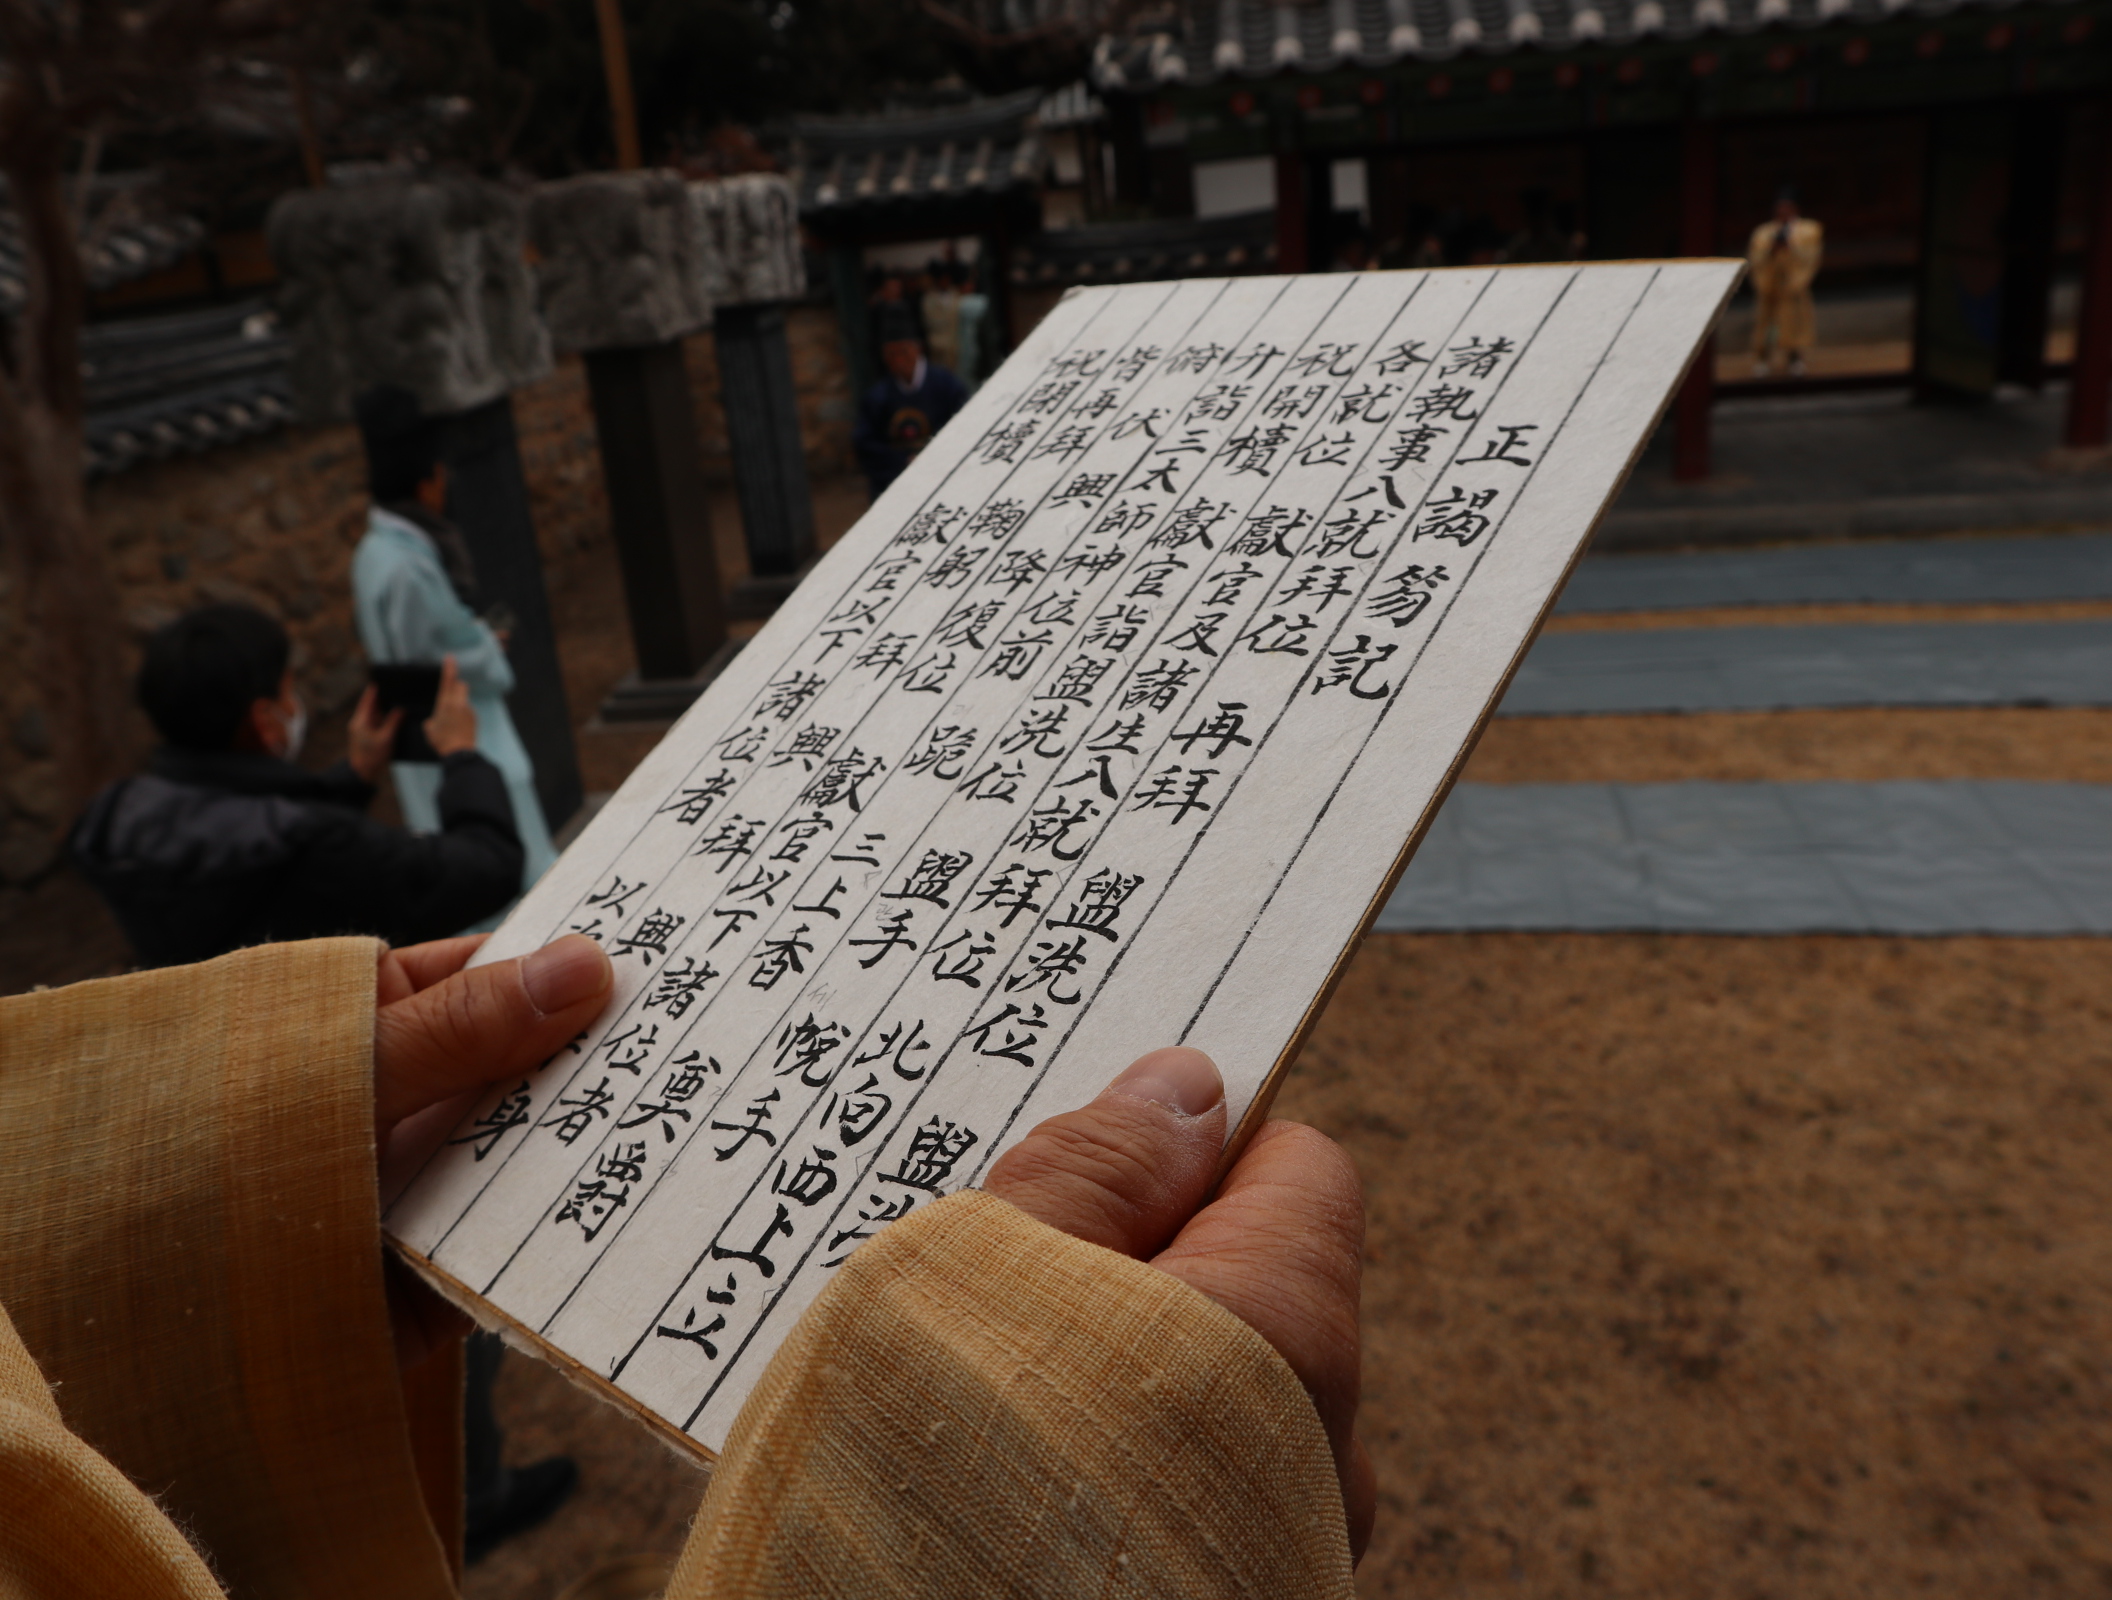 正謁笏記
諸執事入就拜位 再拜 盥洗位 盥洗
各就位 獻官及諸生入就拜位 北向西上立
祝開櫝 獻官詣盥洗位 盥手 帨手
升詣三太師神位前 跪 三上香 奠爵
俯 伏 興 降復位 獻官以下諸位者
皆再拜 鞠躬 拜 興 拜 興 身
祝閉櫝 獻官以下諸位者 以